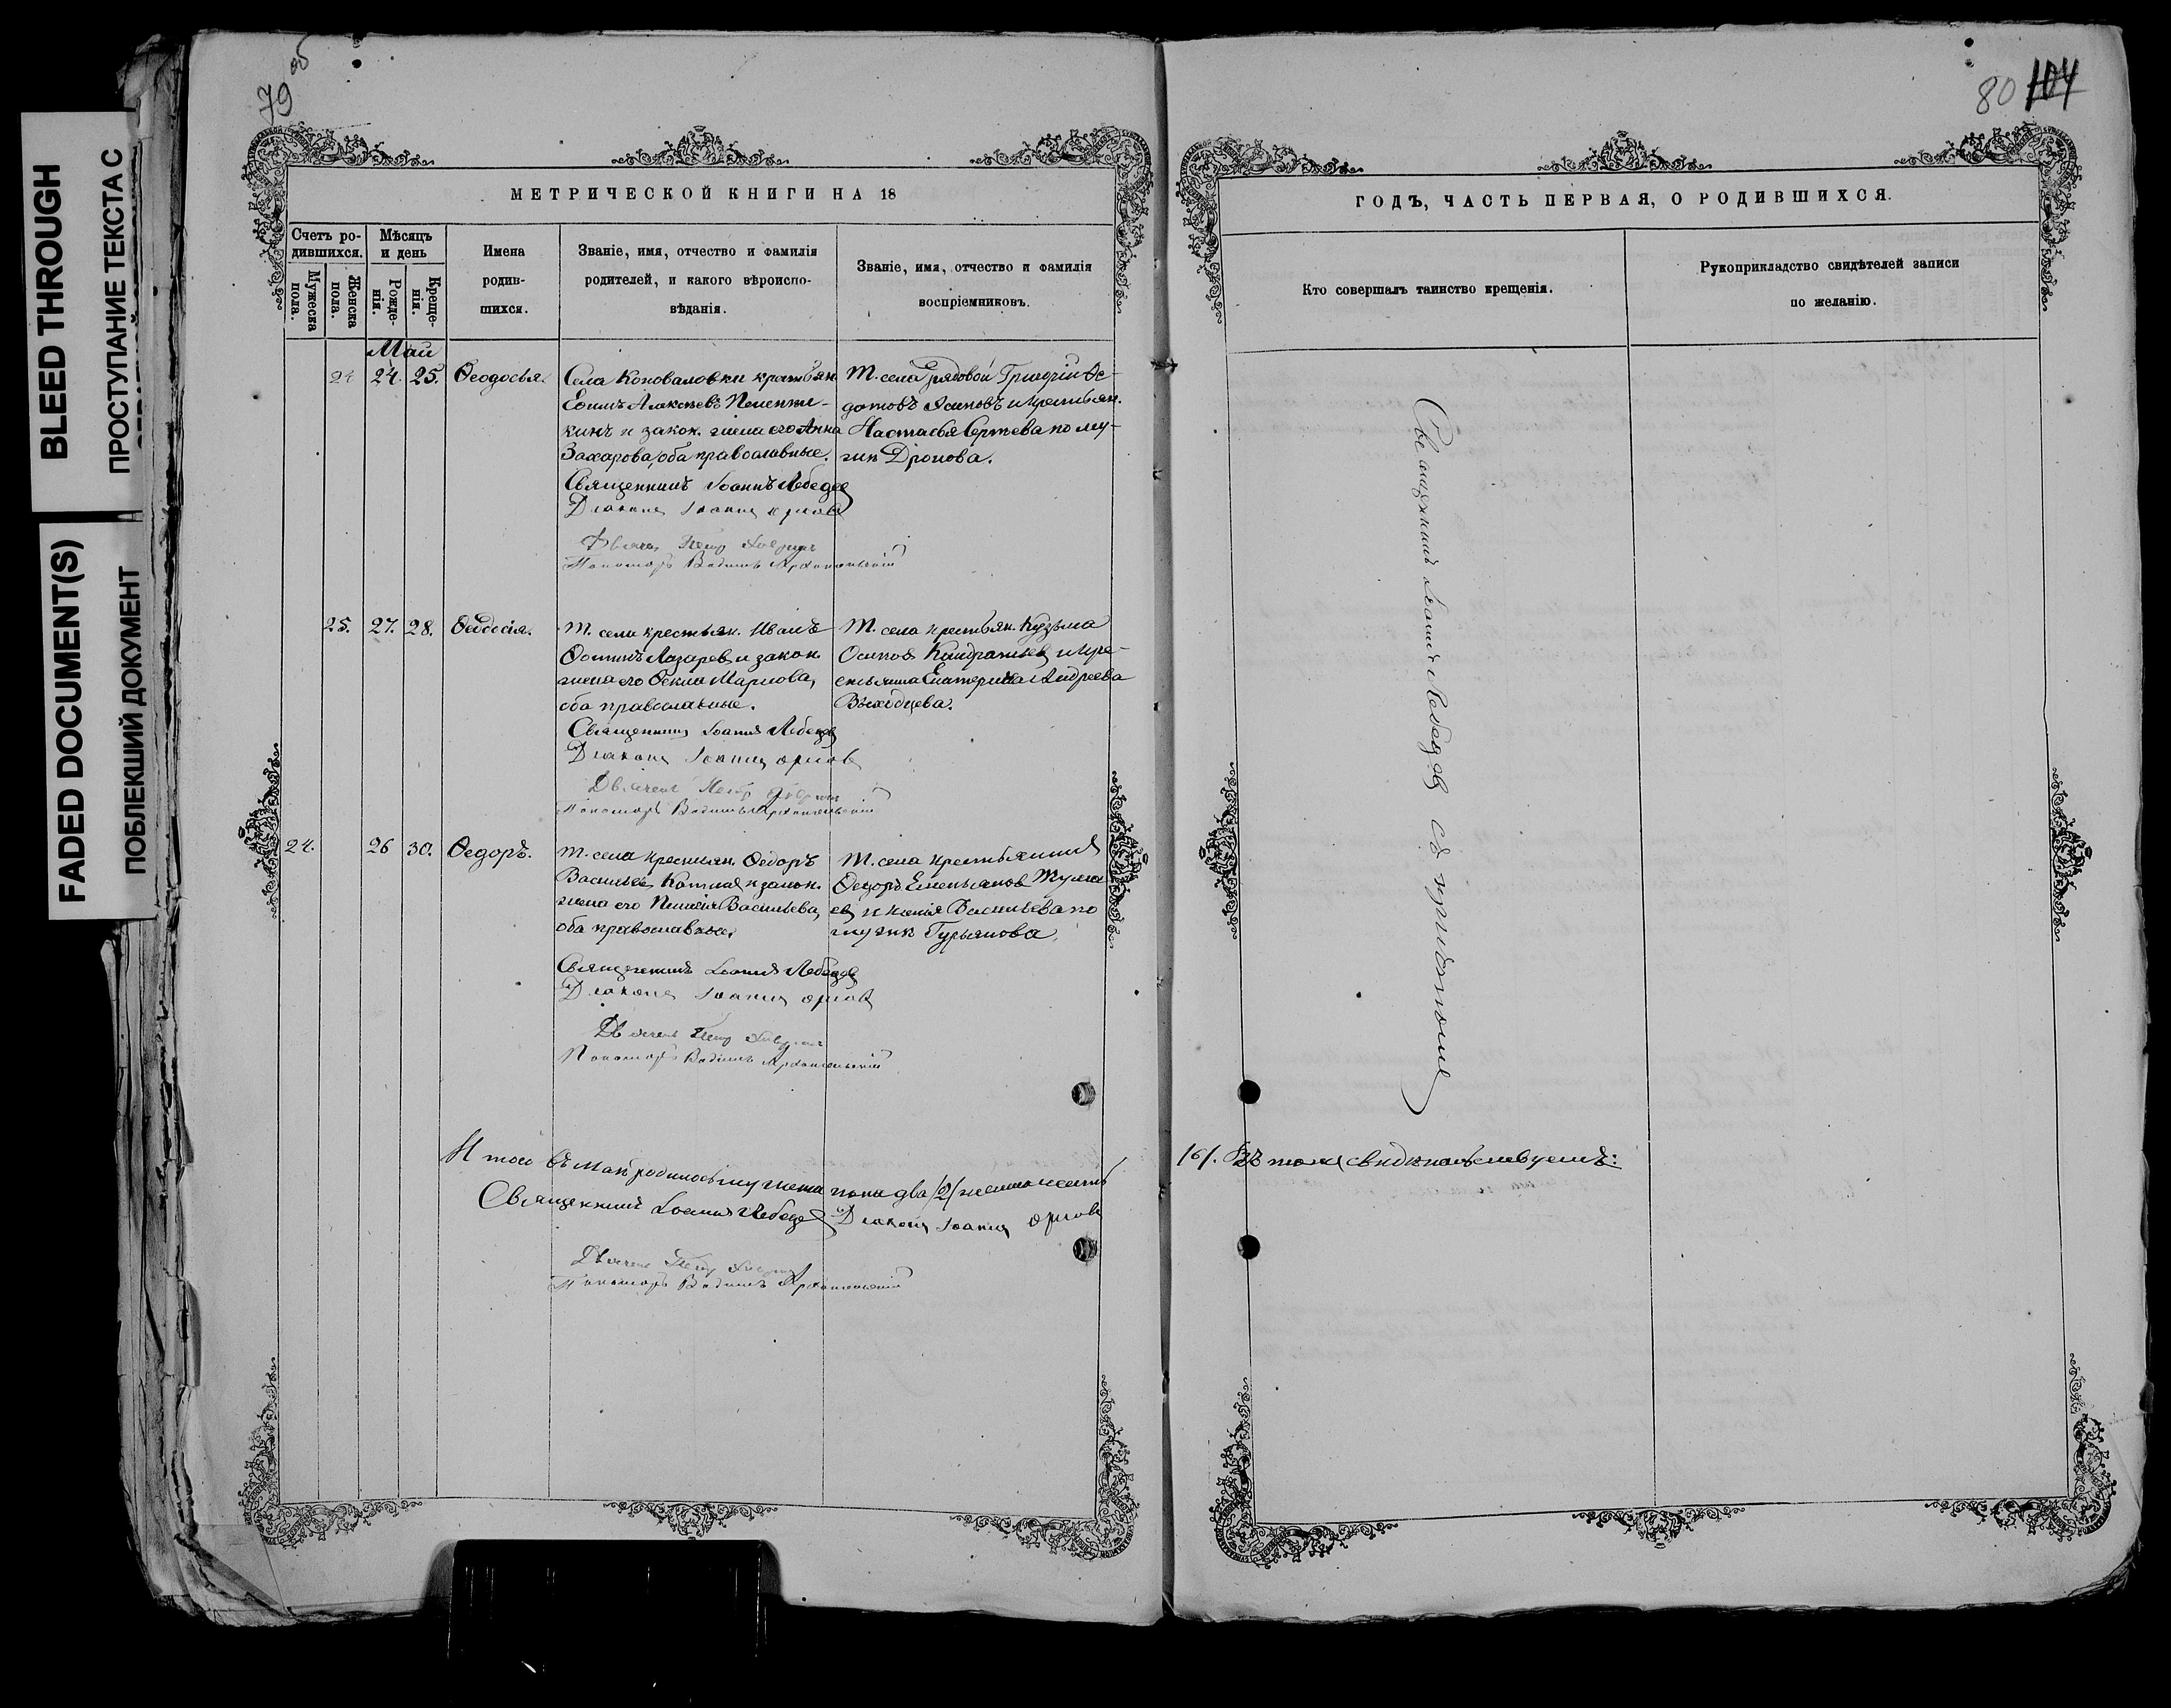 BLEED THROUGH
ПРОСТУПАНИЕ ТЕКСТА С
FADED DOCUMENT(S)
ПОБЛЕКШИЙ ДОКУМЕНТ
79 об
МЕТРИЧЕСКОЙ КНИГИ НА 18
Счетъ ро-
дившихся.
Мужеска
пола.
Женска
пола.
Мѣсяцъ
и день
Рожде-
нія.
Креще-
нія.
Имена
родив-
шихся.
Званіе, имя, отчество и фамилія
родителей, и какого вѣроиспо-
вѣданія.
Званіе, имя, отчество и фамилія
воспріемниковъ.
Май
24 24. 25. Ѳеодосья.
Села Коноваловки крестьян.
Ефимъ Алексѣевъ
и закон. жена его Анна
Захарова, оба православные.
Священникъ Іоаннъ Лебедев
Діаконъ Іоаннъ Орлов
Дьячекъ Петр
Пономарь Вадимъ Архангельскій
Т. села рядовой Григорій Ѳе-
дотовъ Осиповъ и крестьян.
Настасья Сергѣева по му-
жѣ Дронова.
25. 27. 28. Ѳеодосія.
Т. села крестьян. Иванъ
Фоминъ Лазарев и закон.
жена его Ѳекла Маркова,
оба православные.
Священникъ Іоаннъ Лебедев
Діаконъ Іоаннъ Орлов
Дьячекъ Петр
Пономарь Вадимъ Архангельскій
Т. села крестьян. Кузьма
Осипов Кондратьев и кре-
стьянка Екатерина Андреева
Выходцева.
24. 26 30. Ѳедоръ.
Т. села крестьян. Ѳедоръ
Васильев и закон.
жена его Пелагія Васильева,
оба православные.
Священникъ Іоаннъ Лебедев
Діаконъ Іоаннъ Орлов
Дьячекъ Петр
Пономарь Вадимъ Архангельскій
Т. села крестьянинъ
Ѳедоръ Емельянов
и Ксенія Васильева по
мужѣ Гурьянова.
Итого въ маѣ родилось мужеска пола два /2/ женска шесть
Священникъ Іоаннъ Лебедев Діаконъ Іоаннъ Орлов
Дьячекъ Петр
Пономарь Вадимъ Архангельскій
80 104
ГОДЪ, ЧАСТЬ ПЕРВАЯ, О РОДИВШИХСЯ.
Кто совершалъ таинство крещенія.
Рукоприкладство свидѣтелей записи
по желанію.
Священникъ Іоаннъ Лебедев съ причтомъ
/6/. Въ томъ свидѣтельствуемъ: